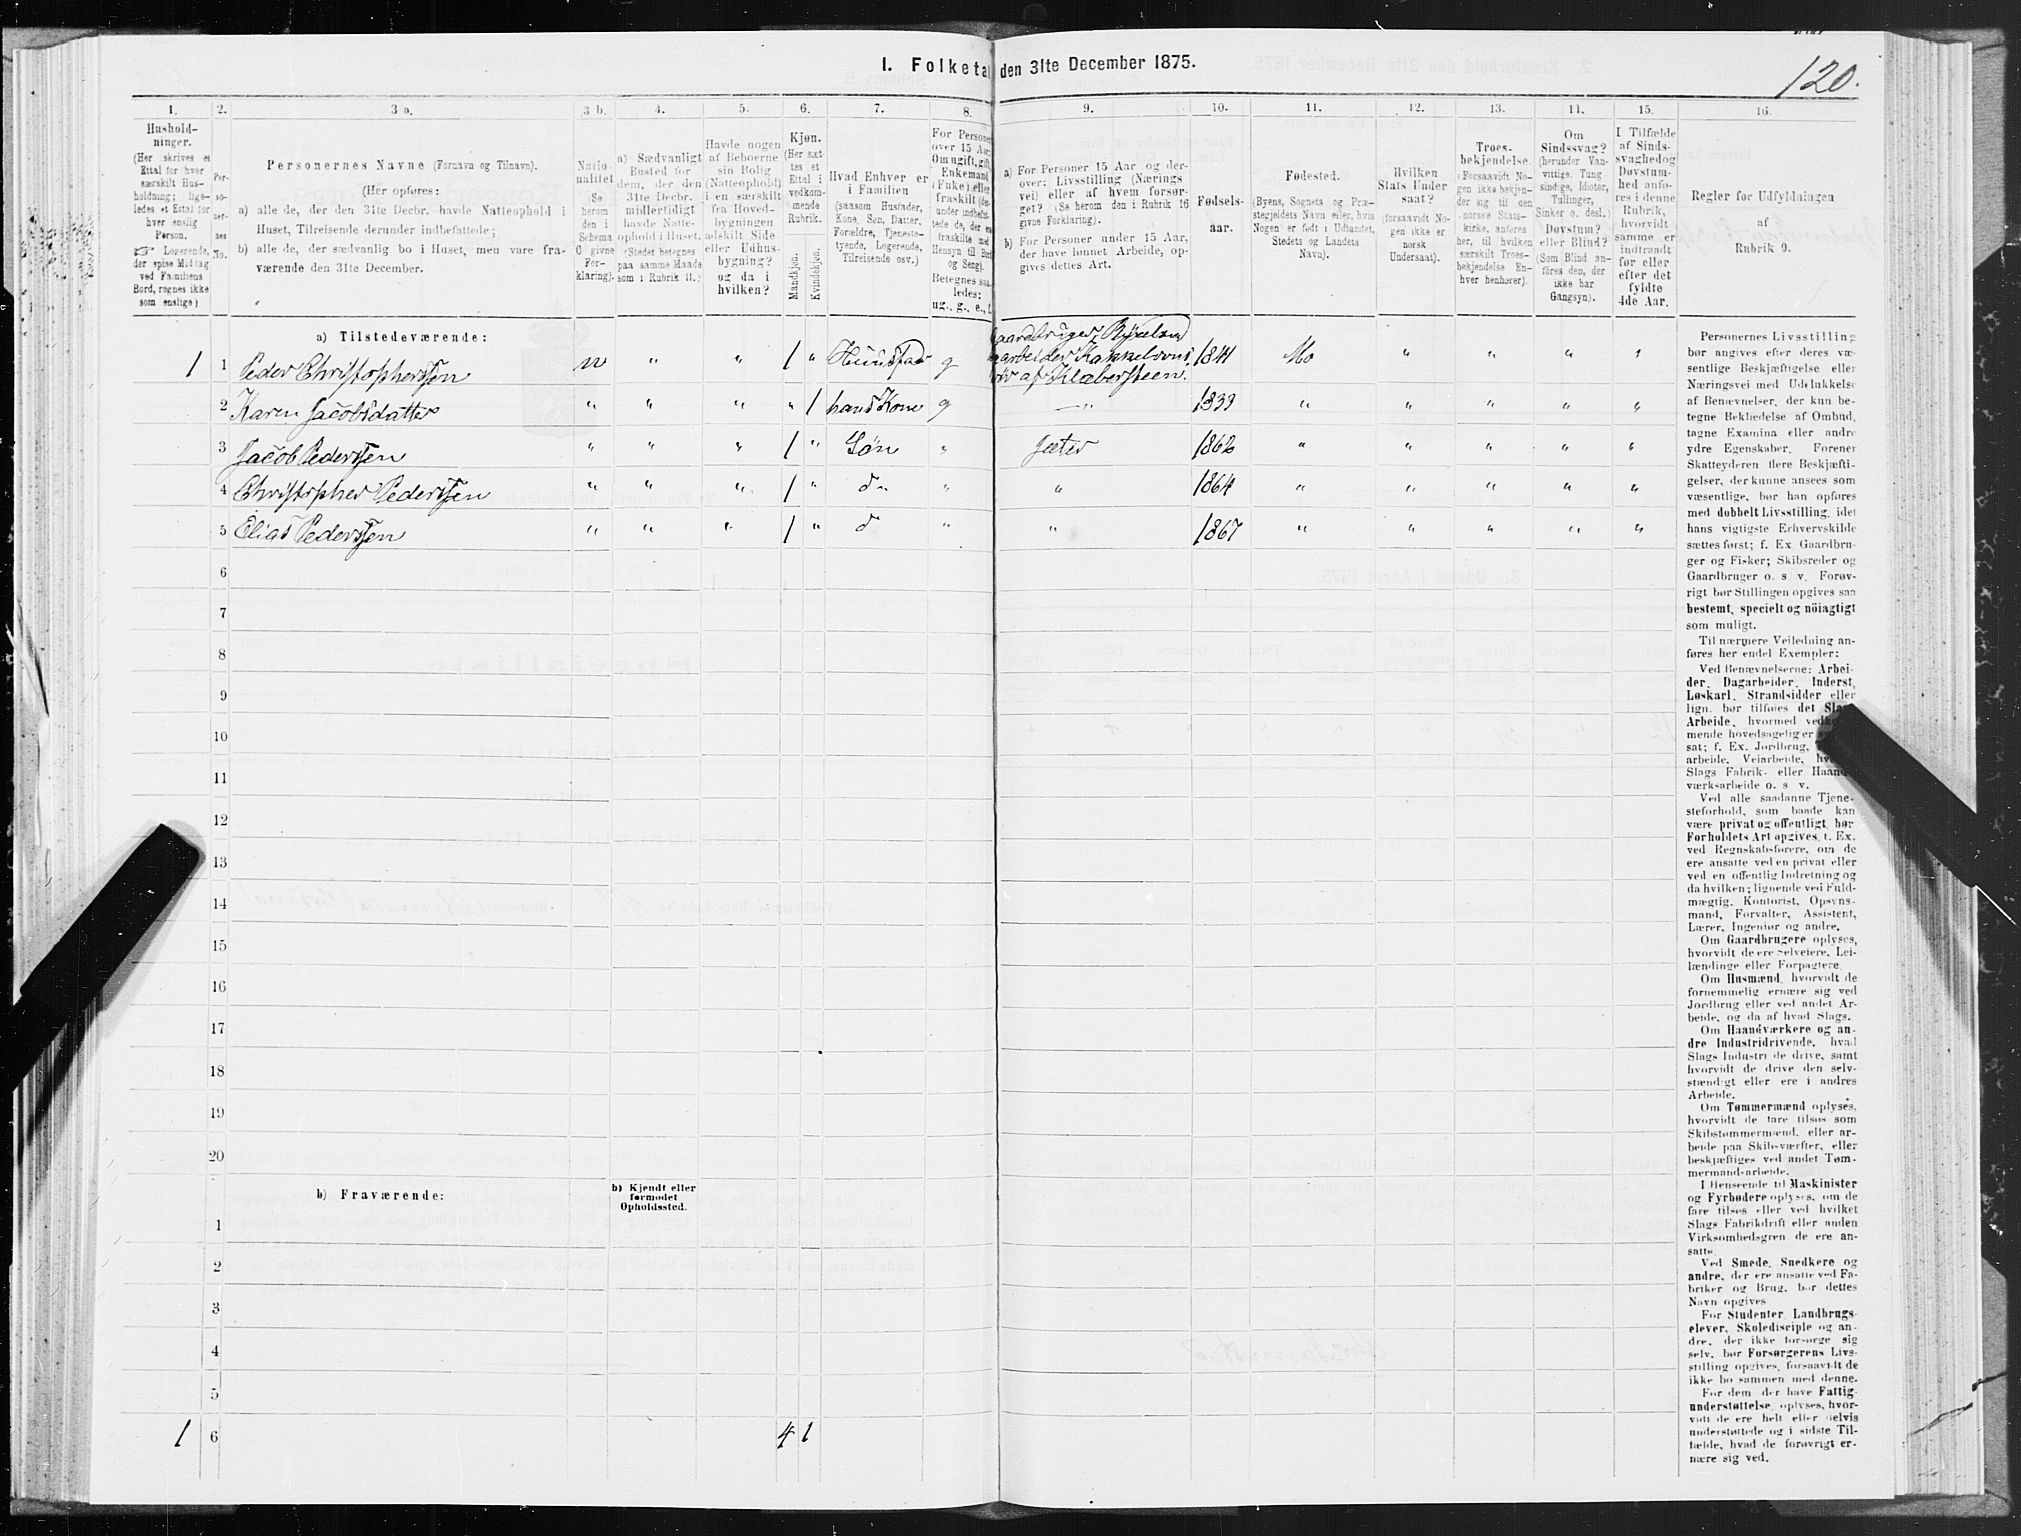 I. Folketal den 31te December 1875.
120.
1.
2.
3 a.
3 b.
4.
5.
6.
7.
8.
9.
10.
11.
12.
13.
14.
15.
16.
Hushold-
ninger.
(Her skrives et
Ettal for hver
særskilt Hus-
holdning; lige-
ledes et Ettal for
hver enslig
Person.
☞ Logerende,
der spise Middag
ved Familiens
Bord, regnes ikke
som enslige)
Per-
so-
ner-
nes
No.
Personernes Navne (Fornavn og Tilnavn).
(Her opføres:
a) alle de, der den 31te Decbr. havde Natteophold i
Huset, Tilreisende derunder indbefattede;
b) alle de, der sædvanlig bo i Huset, men vare fra-
værende den 31te December.
Natio-
nalitet
(Se
herom
den i
Schema
C givne
For-
klaring).
a) Sædvanligt
Bosted for
dem, der den
31te Decbr.
midlertidigt
havde Natte-
ophold i Huset.
(Stedet betegnes
paa samme Maade
som i Rubrik 11.)
Havde nogen
af Beboerne
sin Bolig
(Natteophold)
i en særskilt
fra Hoved-
bygningen
adskilt Side
eller Udhus-
bygning?
og da i
hvilken?
Kjøn.
(Her sæt-
tes et
Ettal i
vedkom-
mende
Rubrik.
Mandkjøn.
Kvindekjøn.
Hvad Enhver er
i Familien
(saasom Husfader,
Kone, Søn, Datter,
Forældre, Tjeneste-
tyende, Logerende,
Tilreisende osv.)
For Personer
over 15 Aar:
Om ugift, gift,
Enkemand
(Enke) eller
fraskilt
fraskilte med
Hensyn til Bord
og Seng).
Betegnes saa-
ledes:
ug., g., e., f.
a) For Personer 15 Aar og der-
over: Livsstilling (Nærings
vei) eller af hvem forsør-
get? (Se herom den i Rubrik 16
givne Forklaring).
b) For Personer under 15 Aar,
der have lønnet Arbeide, op-
gives dettes Art.
Fødsels-
aar.
Fødested.
(Byens, Sognets og Præ-
stegjeldets Navn eller, hvis
Nogen er født i Udlandet,
Stedets og Landets
Navn).
Hvilken
Stats Under
saat?
(forsaavidt No-
gen ikke er
norsk
Undersaat).
Troes-
bekjendelse.
(Forsaavidt No-
gen ikke bekjen-
der sig til den
norske Stats-
kirke, anføres
her, til hvilken
særskilt Troes-
bekjendelse En-
hver henhører).
Om
Sindssvag?
(herunder Van-
vittige, Tung
sindige, Idioter,
Tullinger,
Sinker o. desl.)
Døvstum?
eller Blind?
(Som Blind an-
føres den, der
ikke har
Gangsyn).
I Tilfælde
af Sinds-
svaghed og
Døvstum-
hed anfø-
res i denne
Rubrik,
hvorvidt
samme er
indtraadt
før eller
efter det
fyldte
4de Aar.
Regler for Udfyldningen
af
Rubrik 9.
a) Tilstedeværende:
1 1 Peder Christophersen n " " 1 " Huusfad g Gaardbruger, Ryeelsnd arbeider Kakkelovns 1841 Mo " " " "
af Klæbersteen.
2 Karen Jacobsdatter " " " " 1 hans Kone g —"— 1833 " " " " "
3 Jacob Pedersen " " " 1 " Søn " Jæter 1862 " " " " "
4 Christopher Pedersen " " " 1 " do " " 1864 " " " " "
5 Elias Pedersen " " " 1 " d " " 1867 " " " " "
6
7
8
9
10
11
12
13
14
15
16
17
18
19
20
b) Fraværende:
b) Kjendt eller
formodet
Opholdssted.
1
2
3
4
5
1 6 4 1
Personernes Livsstilling
bør angives efter deres væ-
sentlige Beskjæftigelse eller
Næringsvei med Udelukkelse
af Benævnelser, der kun be-
tegne Beklædelse af Ombud,
tagne Examina eller andre
ydre Egenskaber. Forener
Skatteyderen flere Beskjæfti-
gelser, der kunne ansees som
væsentlige, bør han opføres
med dobbelt Livsstilling, idet
hans vigtigste Erhvervskilde
sættes først; f. Ex. Gaardbru-
ger og Fisker; Skibsreder og
Gaardbruger o. s. v. Forøv-
rigt bør Stillingen opgives saa
bestemt, specielt og nöiagtigt
som muligt.
Til nærmere Veiledning an-
føres her endel Exempler:
Ved Benævnelserne: Arbei-
der, Dagarbeider, Inderst,
Løskarl, Strandsidder eller
lign. bør tilføies det Slags
Arbeide, hvormed vedkom-
mende hovedsagelig er
sat; f. Ex. Jordbrug,
arbeide, Veiarbeide,
Slags Fabrik- eller Haand-
værksarbeide o. s. v.
Ved alle saadanne Tjene-
steforhold, som baade kan
være privat og offentligt, bør
Forholdets Art opgives, t. Ex.
ved Regnskabsførere, om de
ere ansatte ved en privat eller
ved en offentlig Indretning og
da hvilken; lignende ved Fuld-
mægtig, Kontorist, Opsyns-
mand, Forvalter, Assistent,
Lærer, Ingeniør og andre.
Om Gaardbrugere oplyses,
hvorvidt de ere Selveiere, Lei-
lændinge eller Forpagtere.
Om Husmænd, hvorvidt de
fornemmelig ernære sig ved
Jordbrug eller ved andet Ar-
beide, og da af hvad Slags.
Om Haandværkere og an-
dre Industridrivende, hvad
Slags Industri de drive, samt
hvorvidt de drive den selv-
stændigt eller ere i andres
Arbeide.
Om Tømmermænd oplyses,
hvorvidt de fare tilsøs som
Skibstømmermænd, eller ar-
beide paa Skibsværfter, eller
beskjæftiges ved andet Tøm-
mermandsarbeide.
I Henseende til Maskinister
og Fyrbødere oplyses, om de
fare tilsøs eller ved hvilket
Slags Fabrikdrift eller anden
Virksomhedsgren de ere an-
satte.
Ved Smede, Snedkere og
andre, der ere ansatte ved Fa-
briker og Brug, bør dettes
Navn opgives
For Studenter, Landbrugs-
elever, Skoledisciple og an-
dre, der ikke forsørge sig
selv, bør Forsørgerens Livs-
stilling opgives, forsaavidt de
ikke bo sammen med denne.
For dem, der have Fattig-
understøttelse, oplyses, hvor-
vidt de ere helt eller delvis
understøttede og i sidste Til-
fælde, hvad de forøvrigt er-
nære sig ved.